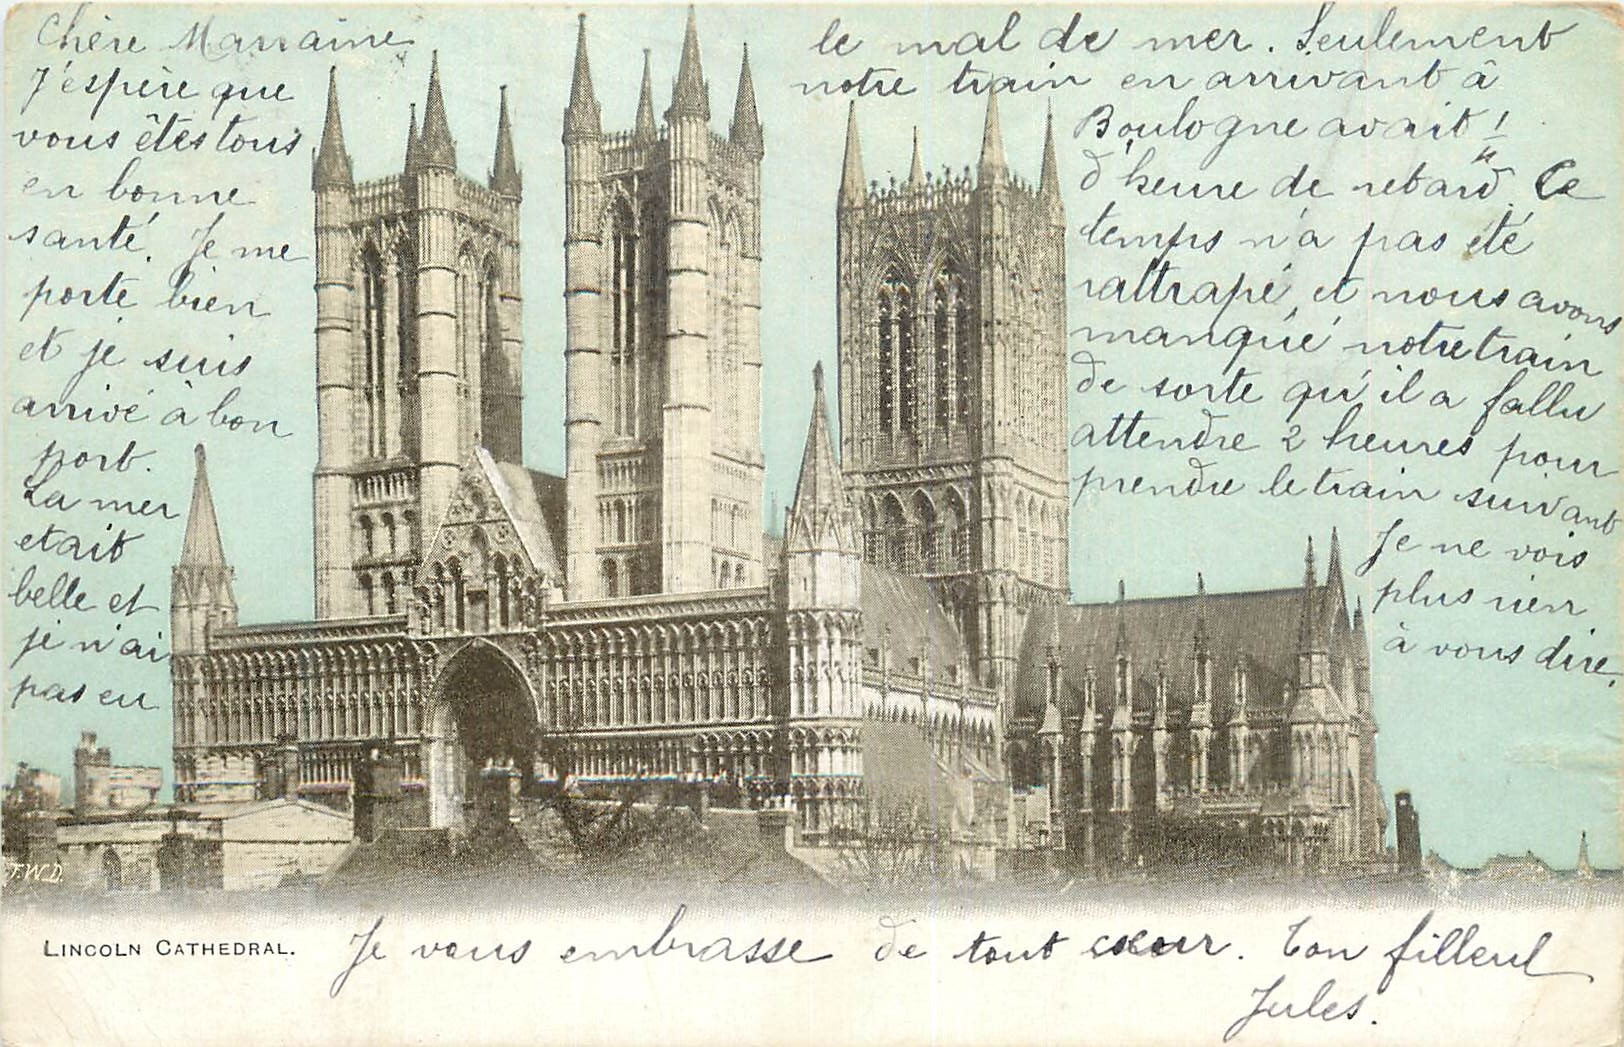 Chère Marraine
J'espère que
vous êtes tous
en bonne
santé. Je me
porte bien
et je suis
arrivé à bon
port.
La mer
etait
belle et
je n'ai
pas eu
le mal de mer. Seulement
notre train en arrivant à
Boulogne avait 1
d'heure de retard. Ce
temps n'a pas été
rattrapé, et nous avons
manqué notre train
de sorte qu'il a fallu
attendre 2 heures pour
prendre le train suivant
Je ne vois
plus rien
à vous dire.
F.W.D.
LINCOLN CATHEDRAL.
Je vous embrasse de tout cœur. Ton filleul
Jules.